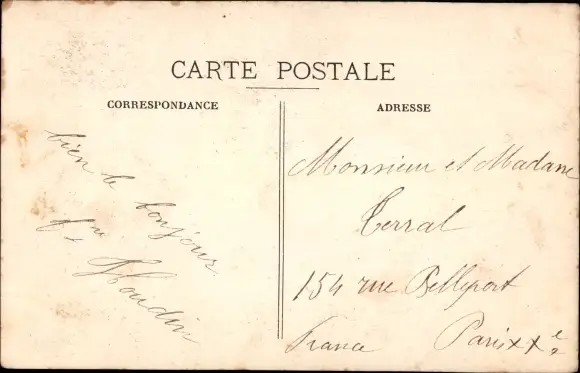 CARTE POSTALE
CORRESPONDANCE
bien le bonjour
Houdin
ADRESSE
Monsieur et Madame
Terral
154 rue Pelleport
France Paris xx e